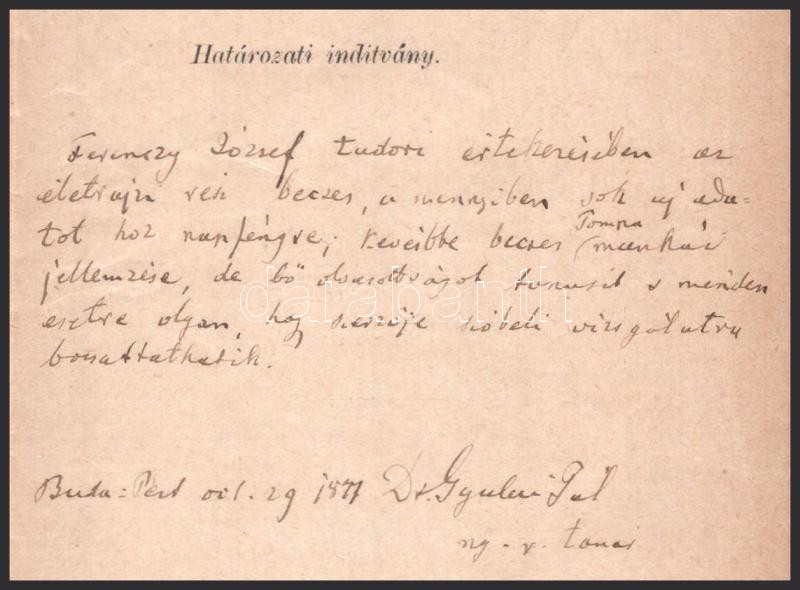 Határozati inditvány.
Ferenczy József tudori értekezésében az
életrajzi rész becses, a mennyiben sok uj ada-
tot hoz napfényre; kevésbbé becses Tompa munkái
jellemzése, de bő olvasottságot tanusit s minden
esetre olyan, hogy szerzője szóbeli vizsgálatra
bocsáttathatik.
Buda-Pest oct. 29 1877 Dr. Gyulai Pál
ny. r. tanár
darabanth